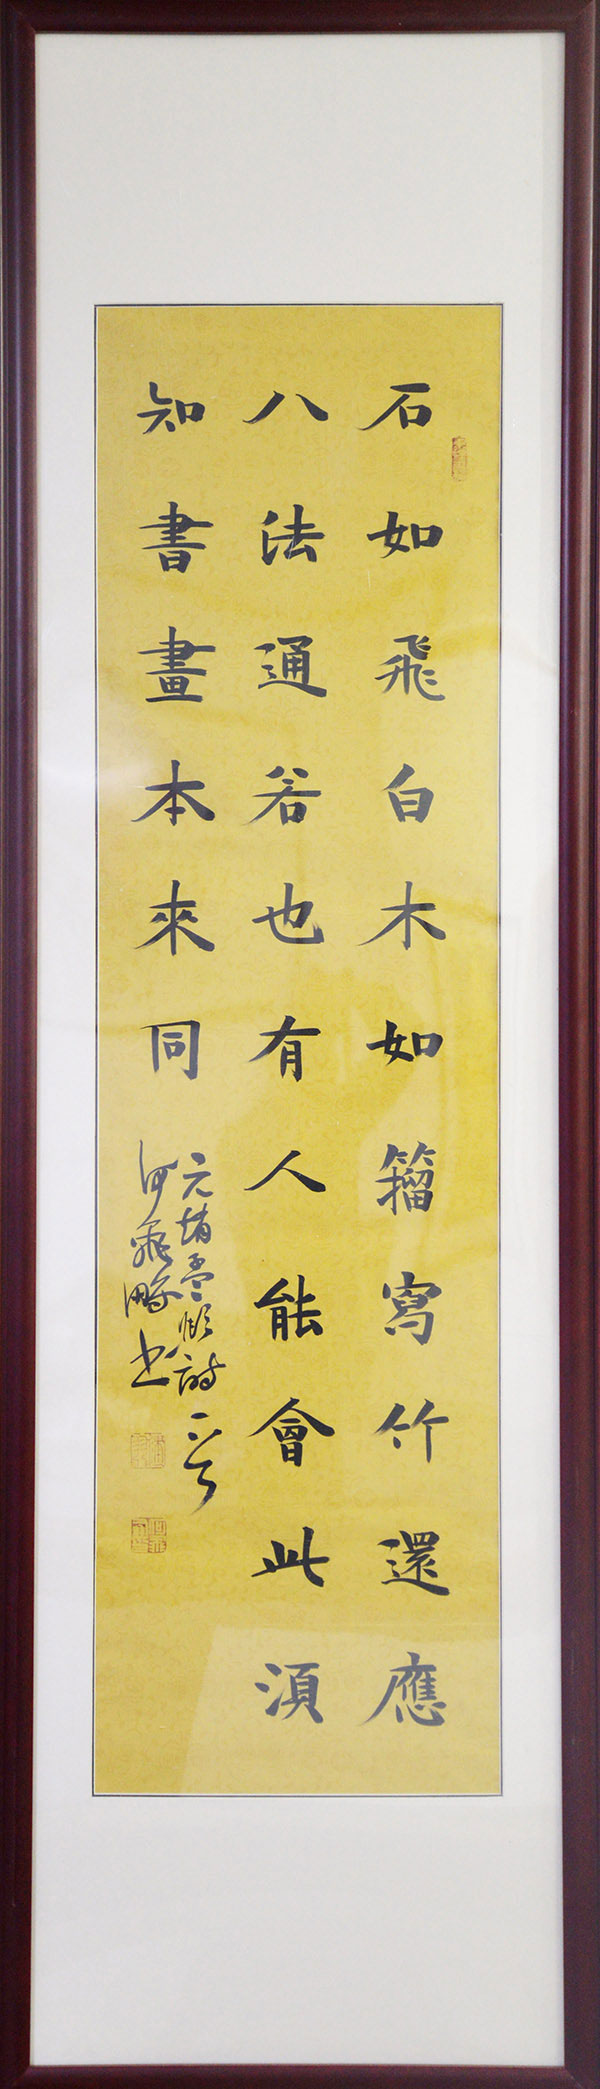 石如飛白木如籀寫竹還應
八法通若也有人能會此湏
知書畫本來同
元趙孟頫詩一首